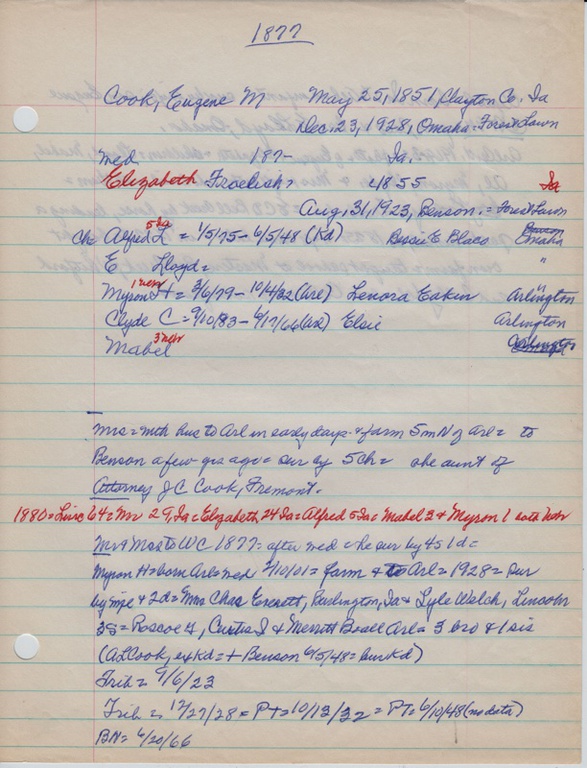 1877
Cook, Eugene M May 25, 1851, Clayton Co. Ia
Dec. 23, 1928, Omaha = Forest Lawn
med 187- Ia.
Elizabeth Froelich = 1855 Ia
Aug. 31, 1923, Benson. = Forest Lawn
ch Alfred L 5 Ia = 1/5/75 - 6/5/48 (Kd) Bessie E Omaha
E Lloyd = "
Myron H 1 neb = 3/6/79 - 10/4/32 (Arl) Lenora Eaken Arlington
Clyde C = 9/10/83 - 6/17/66 (Arl) Elsie Arlington
Mabel 3 neb Arlington
Mrs = mth hus to Arl in early days = farm 5 m N of Arl = to
Benson a few yrs ago = sur by 5 ch = she aunt of
Attorney J C Cook, Fremont.
1880 = Linc 64 = Mr 29, Ia = Elizabeth 24 Ia = Alfred 5 Ia = Mabel 3 & Myron 1 both neb
Mr & Mrs to WC 1877 = after med = he sur by 4s 1d =
Myron H = born Arl = med 2/10/01 = farm & to Arl = 1928 = sur
by wife & 2d = Mrs Chas Everett, Burlington, Ia & Lyle Welch, Lincoln
3S = Roscoe G, Curtis I & Merritt B = all Arl = 3 bro & 1 sis
(A L Cook, ex Kd = + Benson 6/5/48 = bur Kd)
Trib = 9/6/23
Trib = 12/27/28 = PT = 10/13/32 = PT = 6/10/48 (no data)
BN = 6/20/66